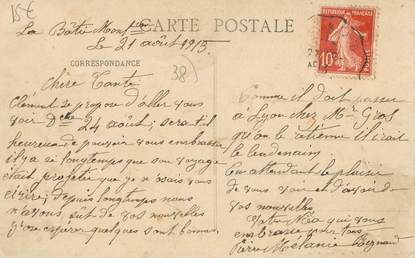 15€
La Bâtie Mont
CARTE POSTALE
Le 21 août 1915.
RÉPUBLIQUE FRANÇAISE
10
POSTES
CORRESPONDANCE
38
Chère Tante
Clément se propose d'aller vous
voir D 24 août; sera-t-il
heureux de pouvoir vous embrasser
il y a si longtemps que son voyage
était projeté que je n'osais vous
écrire; depuis longtemps nous
n'avons eût de vos nouvelles
j'ose espérer quelques sont bonnes.
Comme il doit passer
à Lyon chez Mme Gros
qu'on le retienne il irait
le lendemain
En attendant le plaisir
de vous voir et d'avoir
vos nouvelles
Votre Nièce qui vous
embrasse pour tous
Pierre Mélanie